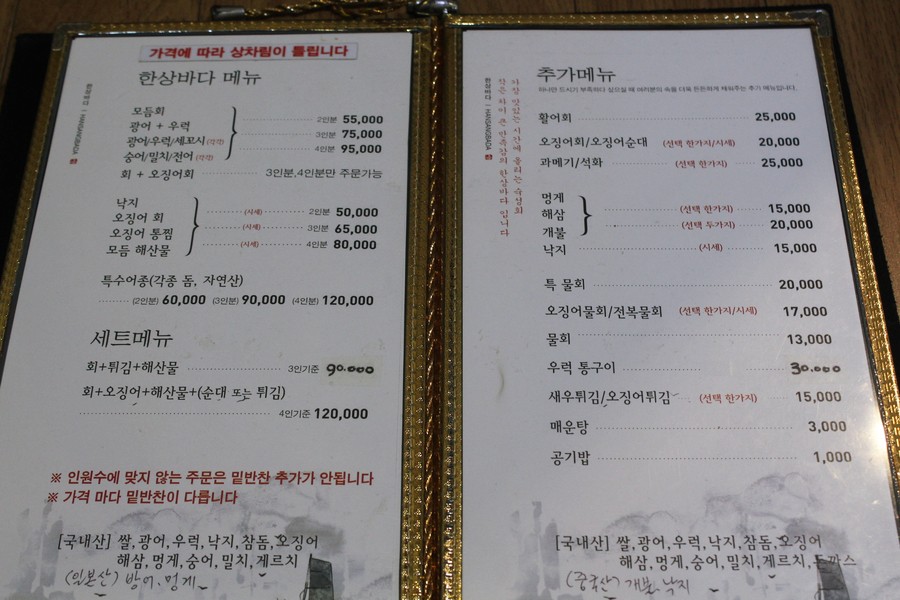 가격에 따라 상차림이 틀립니다
한상바다 메뉴
한상바다 | HANSANGBADA
모듬회
광어 + 우럭
광어/우럭/세꼬시(각각)
숭어/밀치/전어(각각)
2인분 55,000
3인분 75,000
4인분 95,000
회 + 오징어회 3인분,4인분만 주문가능
낙지
오징어 회
오징어 통찜
모듬 해산물
(시세) 2인분 50,000
(시세) 3인분 65,000
(시세) 4인분 80,000
특수어종(각종 돔, 자연산)
(2인분) 60,000 (3인분) 90,000 (4인분) 120,000
세트메뉴
회+튀김+해산물 3인기준 90.000
회+오징어+해산물+(순대 또는 튀김)
4인기준 120,000
※ 인원수에 맞지 않는 주문은 밑반찬 추가가 안됩니다
※ 가격 마다 밑반찬이 다릅니다
[국내산] 쌀,광어,우럭,낙지,참돔,오징어
해삼,멍게,숭어,밀치,게르치
(일본산) 방어,멍게
추가메뉴
하나만 드시기 부족하다 싶으실 때 여러분의 속을 더욱 든든하게 해워주는 추가 메뉴입니다.
한상바다 | HANSANGBADA
가장 맛있는 시간에 올리는 숙성회
작은 차이 큰 만족감의 한상바다 입니다
활어회 25,000
오징어회/오징어순대 (선택 한가지) 20,000
과메기/석화 (선택 한가지) 25,000
멍게
해삼
개불
(선택 한가지) 15,000
(선택 두가지) 20,000
낙지 (시세) 15,000
특 물회 20,000
오징어물회/전복물회 (선택 한가지/시세) 17,000
물회 13,000
우럭 통구이 30.000
새우튀김/오징어튀김 (선택 한가지) 15,000
매운탕 3,000
공기밥 1,000
[국내산] 쌀,광어,우럭,낙지,참돔,오징어
해삼,멍게,숭어,밀치,게르치,돈까스
(중국산) 개불, 낙지